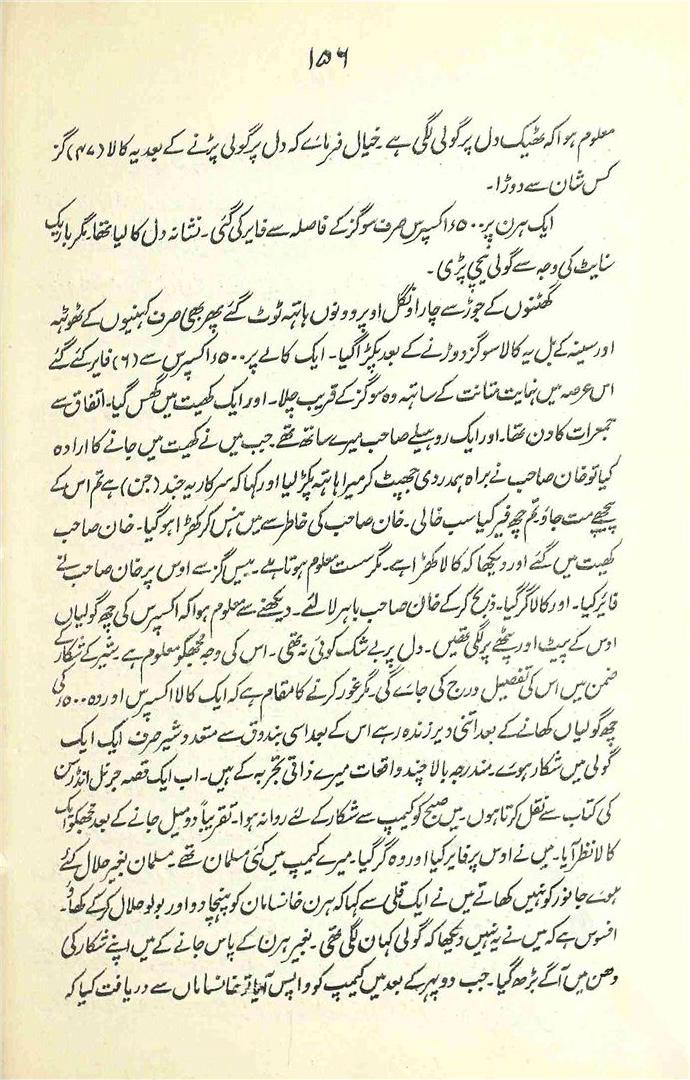 ۱۵۶
معلوم ہوا کہ ٹھیک دل پر گولی لگی ہے۔ خیال فرمائے کہ دل پر گولی پڑنے کے بعد یہ کالا (۴۷) گز
کس شان سے دوڑا۔
ایک ہرن پر ۵۰۰ء اکسپرس صرف سو گز کے فاصلہ سے فایر کی گئی۔ نشانہ دل کا لیا تھا۔ مگر باریک
سایٹ کی وجہ سے گولی نیچی پڑی۔
گھٹنوں کے جوڑ سے چار اونگل اوپر دونوں ہاتہہ ٹوٹ گئے پھر بھی صرف کہنیوں کے ٹھونٹہہ
اور سینہ کے بل یہ کالا سو گز دوڑنے کے بعد پکڑا گیا۔ ایک کالے پر ۵۰۰ء اکسپرس سے (۶) فایر کئے گئے
اس عرصہ میں نہایت متانت کے ساتہہ وہ سو گز کے قریب چلا۔ اور ایک کھیت میں گھس گیا۔ اتفاق سے
جمعرات کا دن تھا۔ اور ایک روہیلے صاحب میرے ساتھ تھے۔ جب میں نے کھیت میں جانے کا ارادہ
کیا تو خان صاحب نے براہ ہمدردی جھپٹ کر میرا ہاتہہ پکڑ لیا اور کہا کہ سرکار یہ جند (جن) ہے تم اس کے
پیچھے مت جاؤ تم چھ فیر کیا سب خالی۔ خان صاحب کی خاطر سے میں ہنس کر کھڑا ہو گیا۔ خان صاحب
کھیت میں گئے اور دیکھا کہ کالا کھڑا ہے۔ مگر سست معلوم ہوتا ہے۔ بیس گز سے اوس پر خان صاحب نے
فائر کیا۔ اور کالا گر گیا۔ ذبح کر کے خان صاحب باہر لائے۔ دیکھنے سے معلوم ہوا کہ اکسپرس کی چھ گولیاں
اوس کے پیٹ اور پٹھے پر لگی تھیں۔ دل پر بے شک کوئی نہ تھی۔ اس کی وجہ مجھکو معلوم ہے۔ شیر کے شکار کے
ضمن میں اس کی تفصیل درج کی جاے گی۔ مگر غور کرنے کا مقام ہے کہ ایک کالا اکسپرس اور وہ ۵۰۰ء کی
چھ گولیاں کھانے کے بعد اتنی دیر زندہ رہے اس کے بعد اسی بندوق سے متعدد شیر صرف ایک ایک
گولی میں شکار ہوے۔ مندرجہ بالا چند واقعات میرے ذاتی تجربہ کے ہیں۔ اب ایک قصہ جرنل انڈرسن
کی کتاب سے نقل کرتا ہوں۔ میں صبح کو کیمپ سے شکار کے لئے روانہ ہوا۔ تقریباً دو میل جانے کے بعد مجھکو ایک
کالا نظر آیا۔ میں نے اوس پر فایر کیا اور وہ گر گیا۔ میرے کیمپ میں کئی مسلمان تھے۔ مسلمان بغیر حلال کئے
ہوے جانور کو نہیں کھاتے میں نے ایک قلی سے کہا کہ ہرن خانسامان کو پہنچا دو اور بولو حلال کر کے کھاؤ۔
افسوس ہے کہ میں نے یہ نہیں دیکھا کہ گولی کہان لگی تھی۔ بغیر ہرن کے پاس جانے کے میں اپنے شکار کی
دھن میں آگے بڑھ گیا۔ جب دوپہر کے بعد میں کیمپ کو واپس آیا تو خانساماں سے دریافت کیا کہ